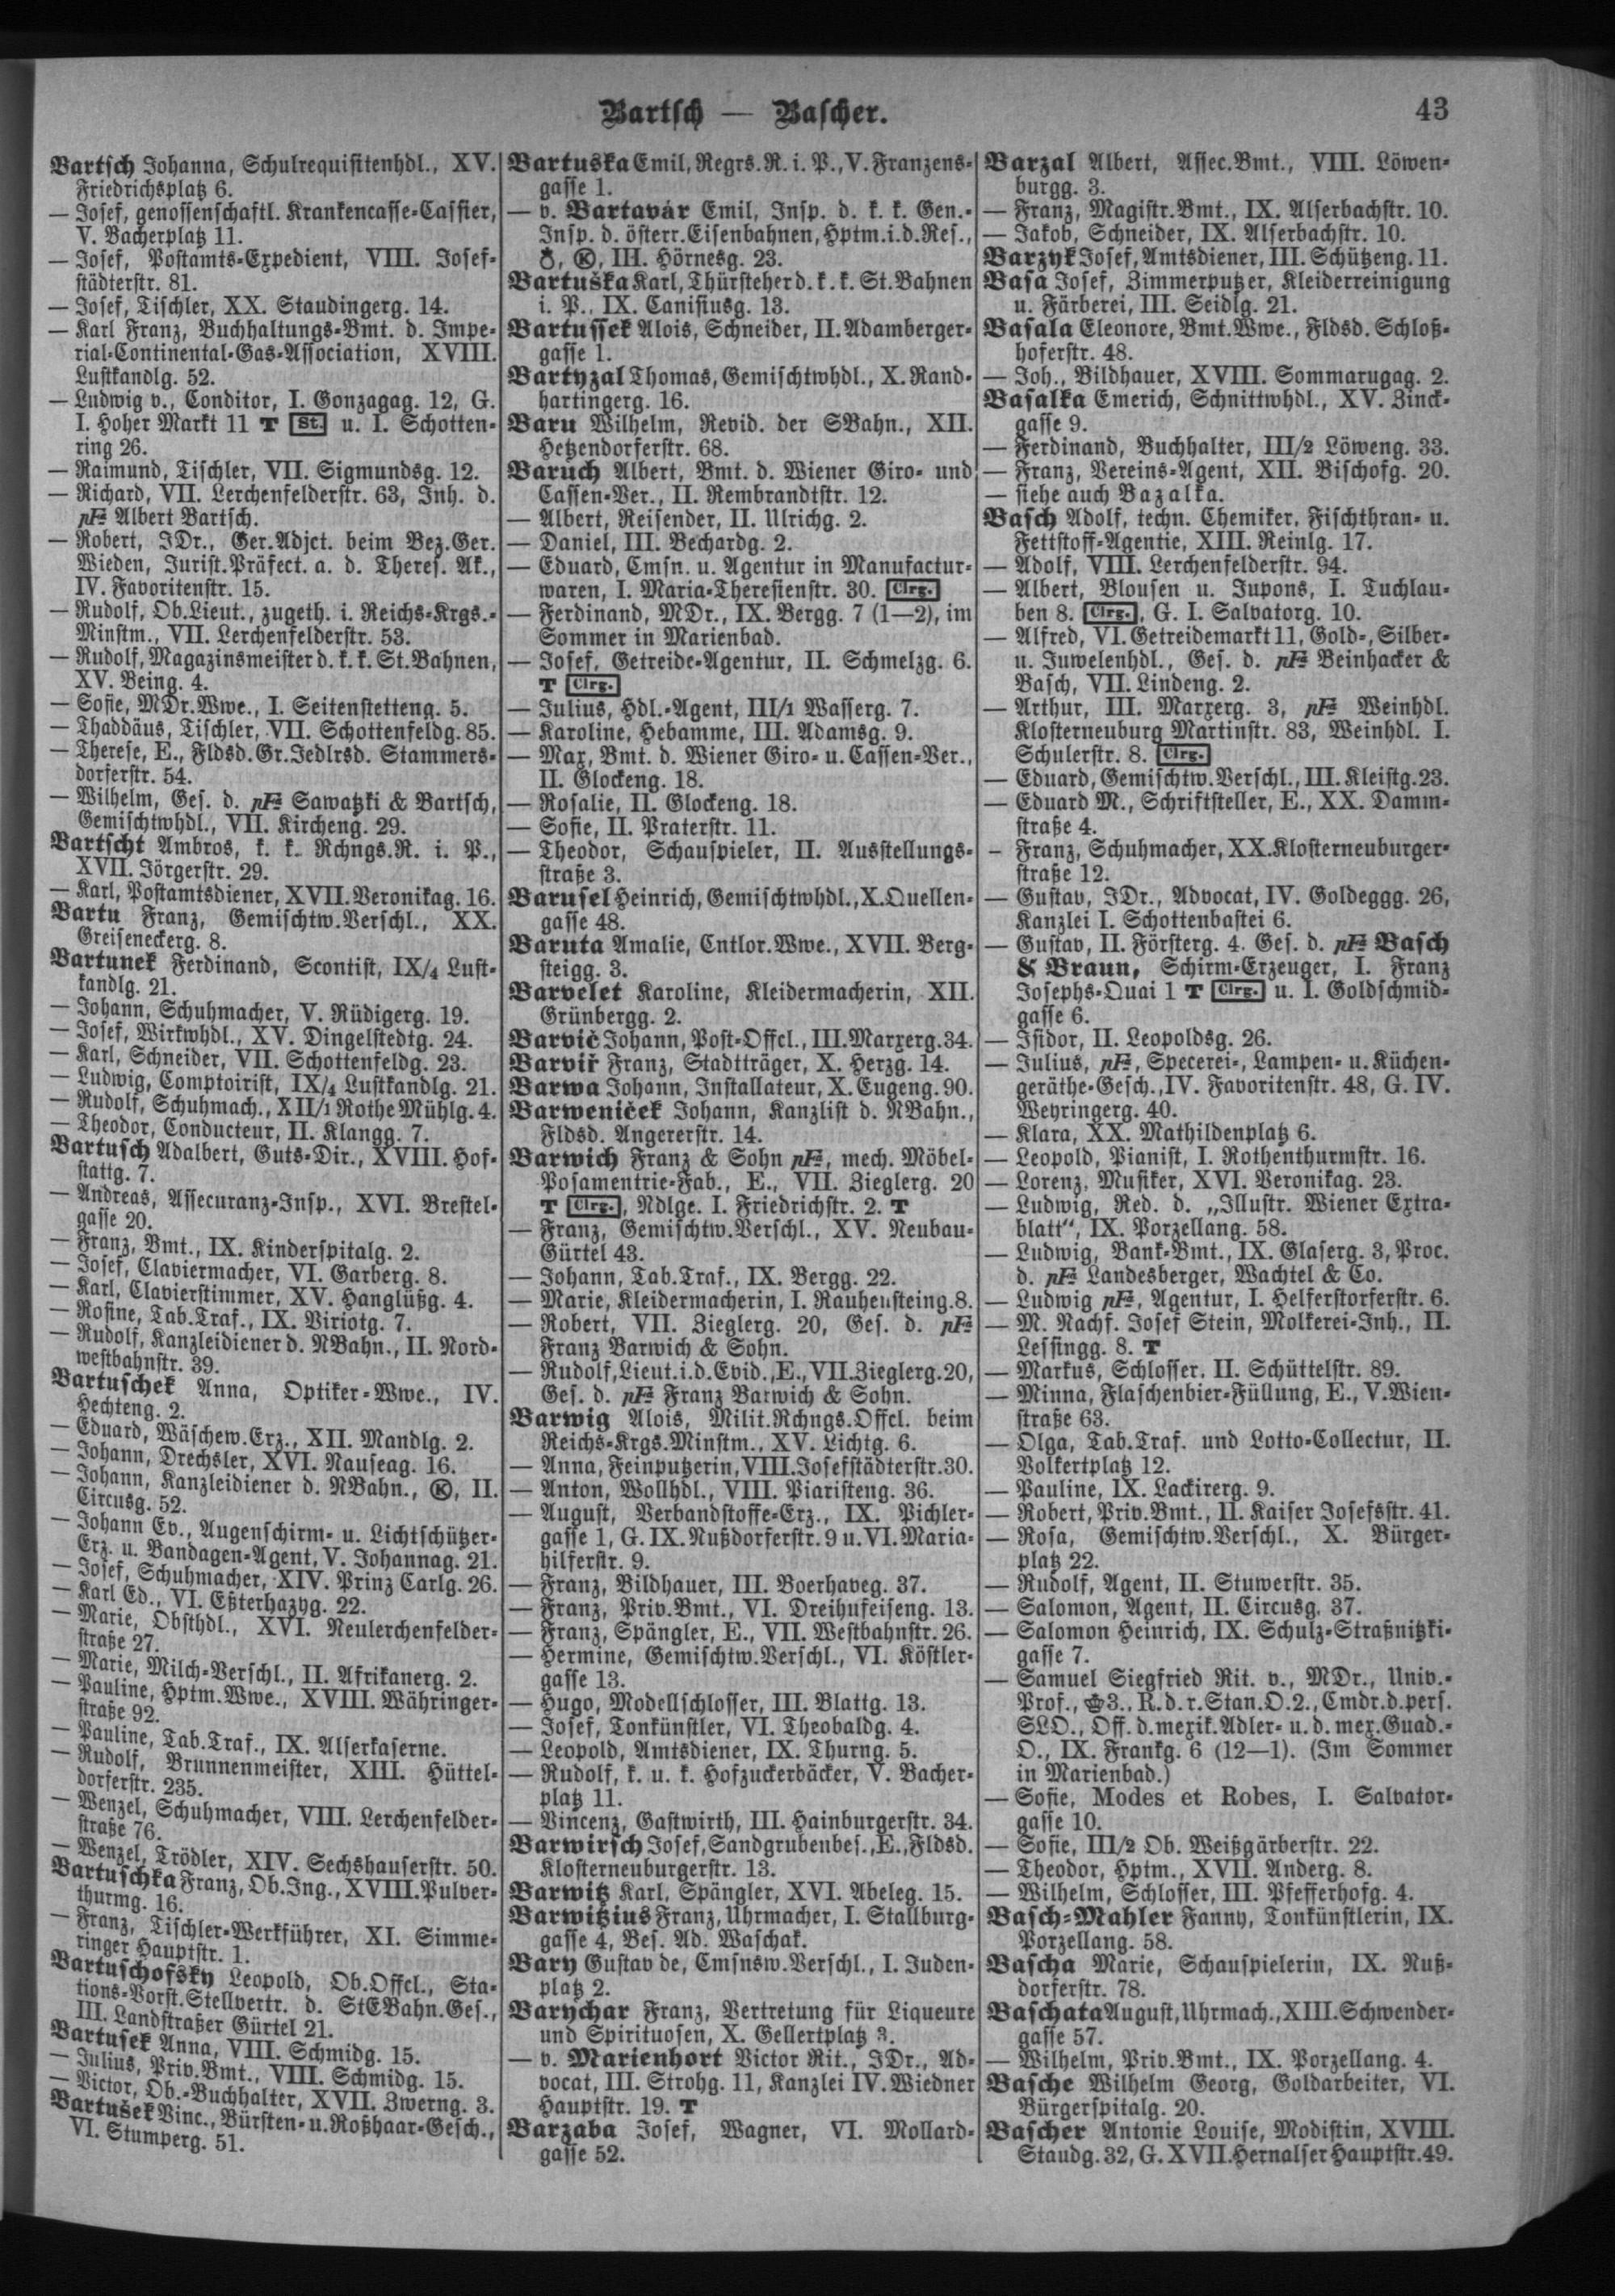 Bartsch — Bascher.
43
Bartsch Johanna, Schulrequisitenhdl., XV.
Friedrichsplatz 6.
— Josef, genossenschaftl. Krankencasse-Cassier,
V. Bacherplatz 11.
— Josef, Postamts-Expedient, VIII. Josef-
städterstr. 81.
— Josef, Tischler, XX. Staudingerg. 14.
— Karl Franz, Buchhaltungs-Bmt. d. Impe-
rial-Continental-Gas-Association, XVIII.
Lustkandlg. 52.
— Ludwig v., Conditor, I. Gonzagag. 12, G.
I. Hoher Markt 11 T St. u. I. Schotten-
ring 26.
— Raimund, Tischler, VII. Sigmundsg. 12.
— Richard, VII. Lerchenfelderstr. 63, Inh. d.
pF Albert Bartsch.
— Robert, JDr., Ger.Adjct. beim Bez.Ger.
Wieden, Jurist.Präfect. a. d. Theres. Ak.,
IV. Favoritenstr. 15.
— Rudolf, Ob.Lieut., zugeth. i. Reichs-Krgs.-
Minstm., VII. Lerchenfelderstr. 53.
— Rudolf, Magazinsmeister d. k. k. St.Bahnen,
XV. Being. 4.
— Sofie, MDr.Wwe., I. Seitenstetteng. 5.
— Thaddäus, Tischler, VII. Schottenfeldg. 85.
— Therese, E., Fldsd. Gr.Jedlrsd. Stammers-
dorferstr. 54.
— Wilhelm, Ges. d. pF Sawatzki & Bartsch,
Gemischtwhdl., VII. Kircheng. 29.
Bartscht Ambros, k. k. Rchngs.R. i. P.,
XVII. Jörgerstr. 29.
— Karl, Postamtsdiener, XVII. Veronikag. 16.
Bartu Franz, Gemischtw.Verschl., XX.
Greiseneckerg. 8.
Bartunek Ferdinand, Scontist, IX/4 Lust-
kandlg. 21.
— Johann, Schuhmacher, V. Rüdigerg. 19.
— Josef, Wirkwhdl., XV. Dingelstedtg. 24.
— Karl, Schneider, VII. Schottenfeldg. 23.
— Ludwig, Comptoirist, IX/4 Lustkandlg. 21.
— Rudolf, Schuhmach., XII/1 Rothe Mühlg. 4.
— Theodor, Conducteur, II. Klangg. 7.
Bartusch Adalbert, Guts-Dir., XVIII. Hof-
stattg. 7.
— Andreas, Assecuranz-Insp., XVI. Brestel-
gasse 20.
— Franz, Bmt., IX. Kinderspitalg. 2.
— Josef, Claviermacher, VI. Garberg. 8.
— Karl, Clavierstimmer, XV. Hanglüßg. 4.
— Rosine, Tab.Traf., IX. Viriotg. 7.
— Rudolf, Kanzleidiener d. NBahn., II. Nord-
westbahnstr. 39.
Bartuschek Anna, Optiker-Wwe., IV.
Hechteng. 2.
— Eduard, Wäschew.Erz., XII. Mandlg. 2.
— Johann, Drechsler, XVI. Nauseag. 16.
— Johann, Kanzleidiener d. NBahn., Ⓚ, II.
Circusg. 52.
— Johann Ev., Augenschirm- u. Lichtschützer-
Erz. u. Bandagen-Agent, V. Johannag. 21.
— Josef, Schuhmacher, XIV. Prinz Carlg. 26.
— Karl Ed., VI. Eßterhazyg. 22.
— Marie, Obsthdl., XVI. Neulerchenfelder-
straße 27.
— Marie, Milch-Verschl., II. Afrikanerg. 2.
— Pauline, Hptm.Wwe., XVIII. Währinger-
straße 92.
— Pauline, Tab.Traf., IX. Alserkaserne.
— Rudolf, Brunnenmeister, XIII. Hüttel-
dorferstr. 235.
— Wenzel, Schuhmacher, VIII. Lerchenfelder-
straße 76.
— Wenzel, Trödler, XIV. Sechshauserstr. 50.
Bartuschka Franz, Ob.Ing., XVIII. Pulver-
thurmg. 16.
— Franz, Tischler-Werkführer, XI. Simme-
ringer Hauptstr. 1.
Bartuschofsky Leopold, Ob.Offcl., Sta-
tions-Vorst.Stellvertr. d. StEBahn.Ges.,
III. Landstraßer Gürtel 21.
Bartusek Anna, VIII. Schmidg. 15.
— Julius, Priv.Bmt., VIII. Schmidg. 15.
— Victor, Ob.-Buchhalter, XVII. Zwerng. 3.
Bartušek Vinc., Bürsten- u. Roßhaar-Gesch.,
VI. Stumperg. 51.
Bartuska Emil, Regrs.R. i. P., V. Franzens-
gasse 1.
— v. Bartavár Emil, Insp. d. k. k. Gen.-
Insp. d. österr.Eisenbahnen, Hptm.i.d.Res.,
Ⓚ, III. Hörnesg. 23.
Bartuška Karl, Thürsteher d. k. k. St.Bahnen
i. P., IX. Canisiusg. 13.
Bartussek Alois, Schneider, II. Adamberger-
gasse 1.
Bartyzal Thomas, Gemischtwhdl., X. Rand-
hartingerg. 16.
Baru Wilhelm, Revid. der SBahn., XII.
Hetzendorferstr. 68.
Baruch Albert, Bmt. d. Wiener Giro- und
Cassen-Ver., II. Rembrandtstr. 12.
— Albert, Reisender, II. Ulrichg. 2.
— Daniel, III. Bechardg. 2.
— Eduard, Cmsn. u. Agentur in Manufactur-
waren, I. Maria-Theresienstr. 30. Clrg.
— Ferdinand, MDr., IX. Bergg. 7 (1—2), im
Sommer in Marienbad.
— Josef, Getreide-Agentur, II. Schmelzg. 6.
T Clrg.
— Julius, Hdl.-Agent, III/1 Wasserg. 7.
— Karoline, Hebamme, III. Adamsg. 9.
— Max, Bmt. d. Wiener Giro- u. Cassen-Ver.,
II. Glockeng. 18.
— Rosalie, II. Glockeng. 18.
— Sofie, II. Praterstr. 11.
— Theodor, Schauspieler, II. Ausstellungs-
straße 3.
Barusel Heinrich, Gemischtwhdl., X. Quellen-
gasse 48.
Baruta Amalie, Cntlor.Wwe., XVII. Berg-
steigg. 3.
Barvelet Karoline, Kleidermacherin, XII.
Grünbergg. 2.
Barvič Johann, Post-Offcl., III. Marxerg. 34.
Barviř Franz, Stadtträger, X. Herzg. 14.
Barwa Johann, Installateur, X. Eugeng. 90.
Barweniček Johann, Kanzlist d. NBahn.,
Fldsd. Angererstr. 14.
Barwich Franz & Sohn pF, mech. Möbel-
Posamentrie-Fab., E., VII. Zieglerg. 20
T Clrg., Ndlge. I. Friedrichstr. 2. T
— Franz, Gemischtw.Verschl., XV. Neubau-
Gürtel 43.
— Johann, Tab.Traf., IX. Bergg. 22.
— Marie, Kleidermacherin, I. Rauhensteing. 8.
— Robert, VII. Zieglerg. 20, Ges. d. pF
Franz Barwich & Sohn.
— Rudolf, Lieut.i.d.Evid., E., VII. Zieglerg. 20,
Ges. d. pF Franz Barwich & Sohn.
Barwig Alois, Milit.Rchngs.Offcl. beim
Reichs-Krgs.Minstm., XV. Lichtg. 6.
— Anna, Feinputzerin, VIII. Josefstädterstr. 30.
— Anton, Wollhdl., VIII. Piaristeng. 36.
— August, Verbandstoffe-Erz., IX. Pichler-
gasse 1, G. IX. Nußdorferstr. 9 u. VI. Maria-
hilferstr. 9.
— Franz, Bildhauer, III. Boerhaveg. 37.
— Franz, Priv.Bmt., VI. Dreihufeiseng. 13.
— Franz, Spängler, E., VII. Westbahnstr. 26.
— Hermine, Gemischtw.Verschl., VI. Köstler-
gasse 13.
— Hugo, Modellschlosser, III. Blattg. 13.
— Josef, Tonkünstler, VI. Theobaldg. 4.
— Leopold, Amtsdiener, IX. Thurng. 5.
— Rudolf, k. u. k. Hofzuckerbäcker, V. Bacher-
platz 11.
— Vincenz, Gastwirth, III. Hainburgerstr. 34.
Barwirsch Josef, Sandgrubenbes., E., Fldsd.
Klosterneuburgerstr. 13.
Barwitz Karl, Spängler, XVI. Abeleg. 15.
Barwitzius Franz, Uhrmacher, I. Stallburg-
gasse 4, Bes. Ad. Waschak.
Bary Gustav de, Cmsnsw.Verschl., I. Juden-
platz 2.
Barychar Franz, Vertretung für Liqueure
und Spirituosen, X. Gellertplatz 3.
— v. Marienhort Victor Rit., JDr., Ad-
vocat, III. Strohg. 11, Kanzlei IV. Wiedner
Hauptstr. 19. T
Barzaba Josef, Wagner, VI. Mollard-
gasse 52.
Barzal Albert, Assec.Bmt., VIII. Löwen-
burgg. 3.
— Franz, Magistr.Bmt., IX. Alserbachstr. 10.
— Jakob, Schneider, IX. Alserbachstr. 10.
Barzyk Josef, Amtsdiener, III. Schützeng. 11.
Basa Josef, Zimmerputzer, Kleiderreinigung
u. Färberei, III. Seidlg. 21.
Basala Eleonore, Bmt.Wwe., Fldsd. Schloß-
hoferstr. 48.
— Joh., Bildhauer, XVIII. Sommarugag. 2.
Basalka Emerich, Schnittwhdl., XV. Zinck-
gasse 9.
— Ferdinand, Buchhalter, III/2 Löweng. 33.
— Franz, Vereins-Agent, XII. Bischofg. 20.
— siehe auch Bazalka.
Basch Adolf, techn. Chemiker, Fischthran- u.
Fettstoff-Agentie, XIII. Reinlg. 17.
— Adolf, VIII. Lerchenfelderstr. 94.
— Albert, Blousen u. Jupons, I. Tuchlau-
ben 8. Clrg., G. I. Salvatorg. 10.
— Alfred, VI. Getreidemarkt 11, Gold-, Silber-
u. Juwelenhdl., Ges. d. pF Beinhacker &
Basch, VII. Lindeng. 2.
— Arthur, III. Marxerg. 3, pF Weinhdl.
Klosterneuburg Martinstr. 83, Weinhdl. I.
Schulerstr. 8. Clrg.
— Eduard, Gemischtw.Verschl., III. Kleistg. 23.
— Eduard M., Schriftsteller, E., XX. Damm-
straße 4.
— Franz, Schuhmacher, XX. Klosterneuburger-
straße 12.
— Gustav, JDr., Advocat, IV. Goldeggg. 26,
Kanzlei I. Schottenbastei 6.
— Gustav, II. Försterg. 4. Ges. d. pF Basch
& Braun, Schirm-Erzeuger, I. Franz
Josephs-Quai 1 T Clrg. u. I. Goldschmid-
gasse 6.
— Isidor, II. Leopoldsg. 26.
— Julius, pF, Specerei-, Lampen- u. Küchen-
geräthe-Gesch., IV. Favoritenstr. 48, G. IV.
Weyringerg. 40.
— Klara, XX. Mathildenplatz 6.
— Leopold, Pianist, I. Rothenthurmstr. 16.
— Lorenz, Musiker, XVI. Veronikag. 23.
— Ludwig, Red. d. „Illustr. Wiener Extra-
blatt“, IX. Porzellang. 58.
— Ludwig, Bank-Bmt., IX. Glaserg. 3, Proc.
d. pF Landesberger, Wachtel & Co.
— Ludwig pF, Agentur, I. Helferstorferstr. 6.
— M. Nachf. Josef Stein, Molkerei-Inh., II.
Lessingg. 8. T
— Markus, Schlosser, II. Schüttelstr. 89.
— Minna, Flaschenbier-Füllung, E., V. Wien-
straße 63.
— Olga, Tab.Traf. und Lotto-Collectur, II.
Volkertplatz 12.
— Pauline, IX. Lackirerg. 9.
— Robert, Priv.Bmt., II. Kaiser Josefsstr. 41.
— Rosa, Gemischtw.Verschl., X. Bürger-
platz 22.
— Rudolf, Agent, II. Stuwerstr. 35.
— Salomon, Agent, II. Circusg. 37.
— Salomon Heinrich, IX. Schulz-Straßnitzki-
gasse 7.
— Samuel Siegfried Rit. v., MDr., Univ.-
Prof., 3., R. d. r. Stan.O.2., Cmdr.d.pers.
SLO., Off. d. mexik. Adler- u. d. mex. Guad.-
O., IX. Frankg. 6 (12—1). (Im Sommer
in Marienbad.)
— Sofie, Modes et Robes, I. Salvator-
gasse 10.
— Sofie, III/2 Ob. Weißgärberstr. 22.
— Theodor, Hptm., XVII. Anderg. 8.
— Wilhelm, Schlosser, III. Pfefferhofg. 4.
Basch-Mahler Fanny, Tonkünstlerin, IX.
Porzellang. 58.
Bascha Marie, Schauspielerin, IX. Nuß-
dorferstr. 78.
Baschata August, Uhrmach., XIII. Schwender-
gasse 57.
— Wilhelm, Priv.Bmt., IX. Porzellang. 4.
Basche Wilhelm Georg, Goldarbeiter, VI.
Bürgerspitalg. 20.
Bascher Antonie Louise, Modistin, XVIII.
Staudg. 32, G. XVII. Hernalser Hauptstr. 49.